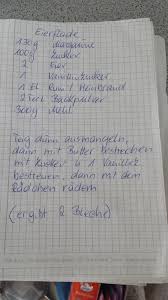 130g Margarine
100g Zucker
2 Eier
1 Vanillinzucker
1 EL Rum / Weinbrand
2 Backpulver
300g Mehl
Teig dünn ausmangeln,
dann mit Butter bestreichen
mit Zucker u. 1 Vanillez.
bestreuen, dann mit dem
Rädchen rädern
(ergibt 2 Bleche)